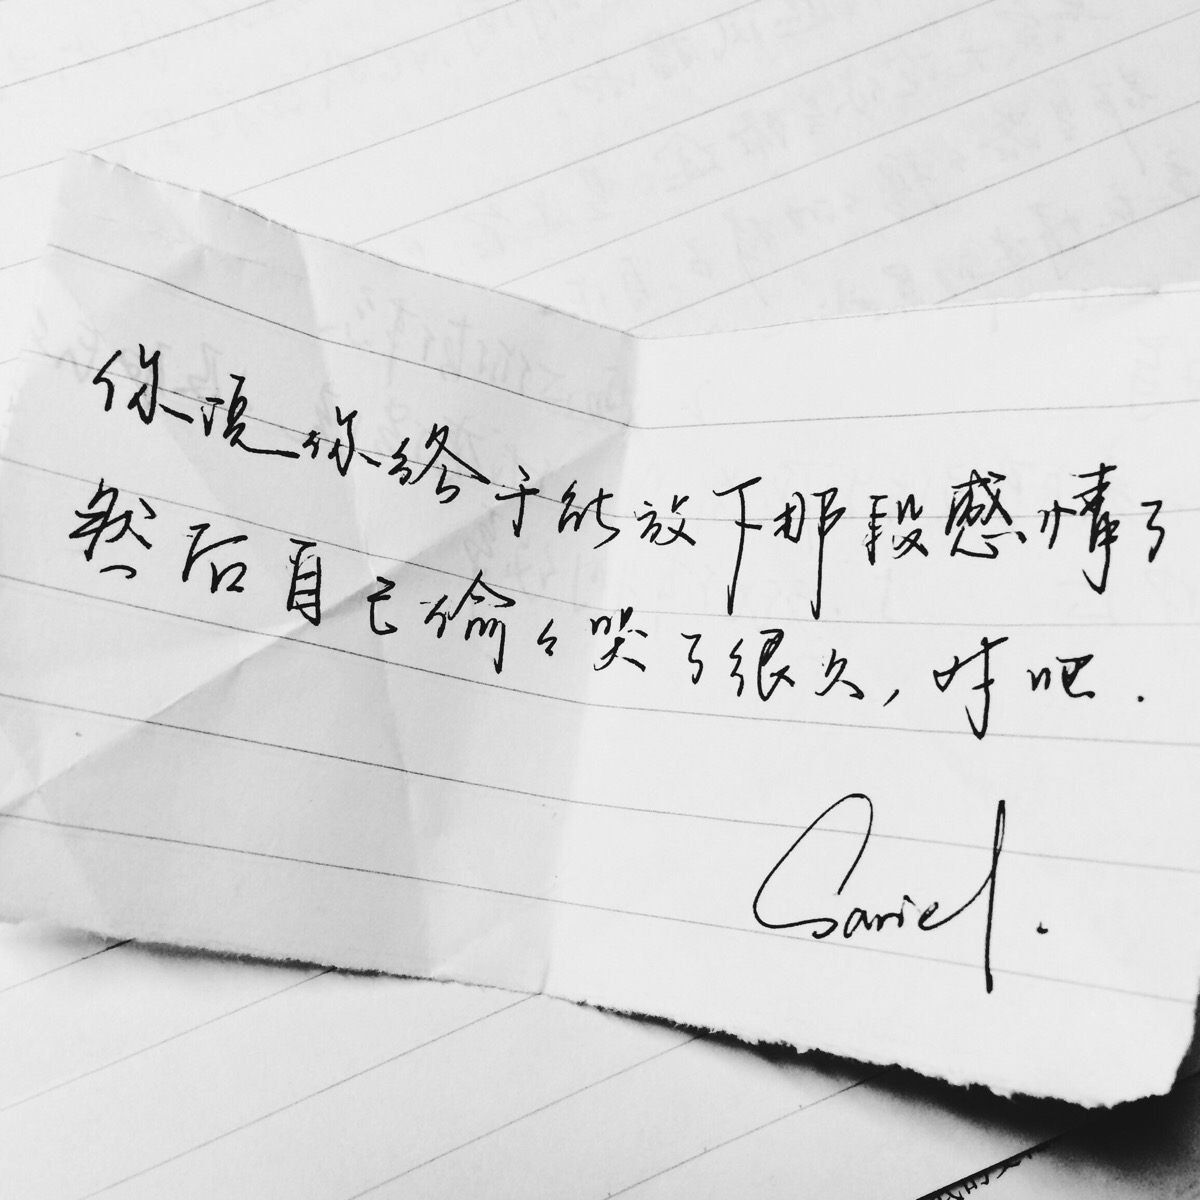 你说你终于能放下那段感情了
然后自己偷々哭了很久,对吧.
Sariel.